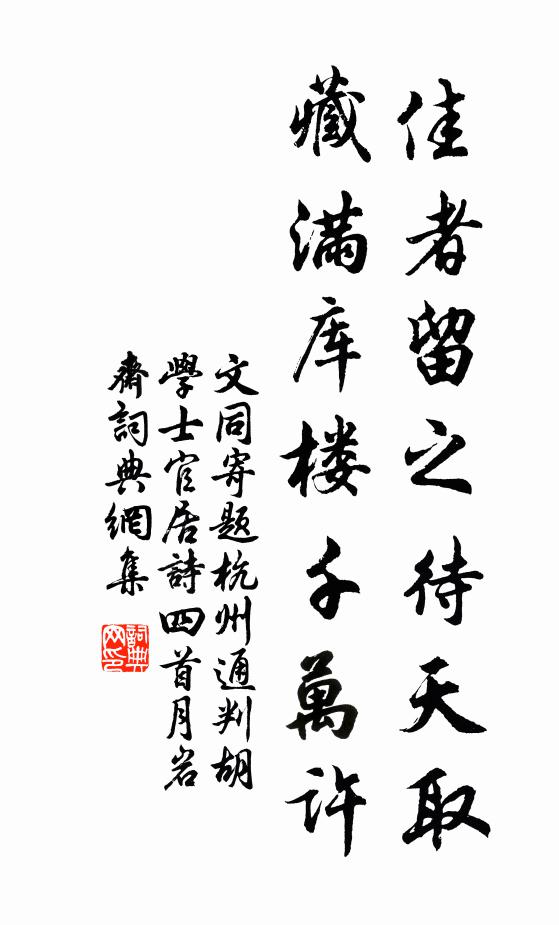 佳者留之待天取
藏满库楼千萬許
文同寄题杭州通判胡
學士官居詩四首月岩
齋詞典網集
詞典
网印